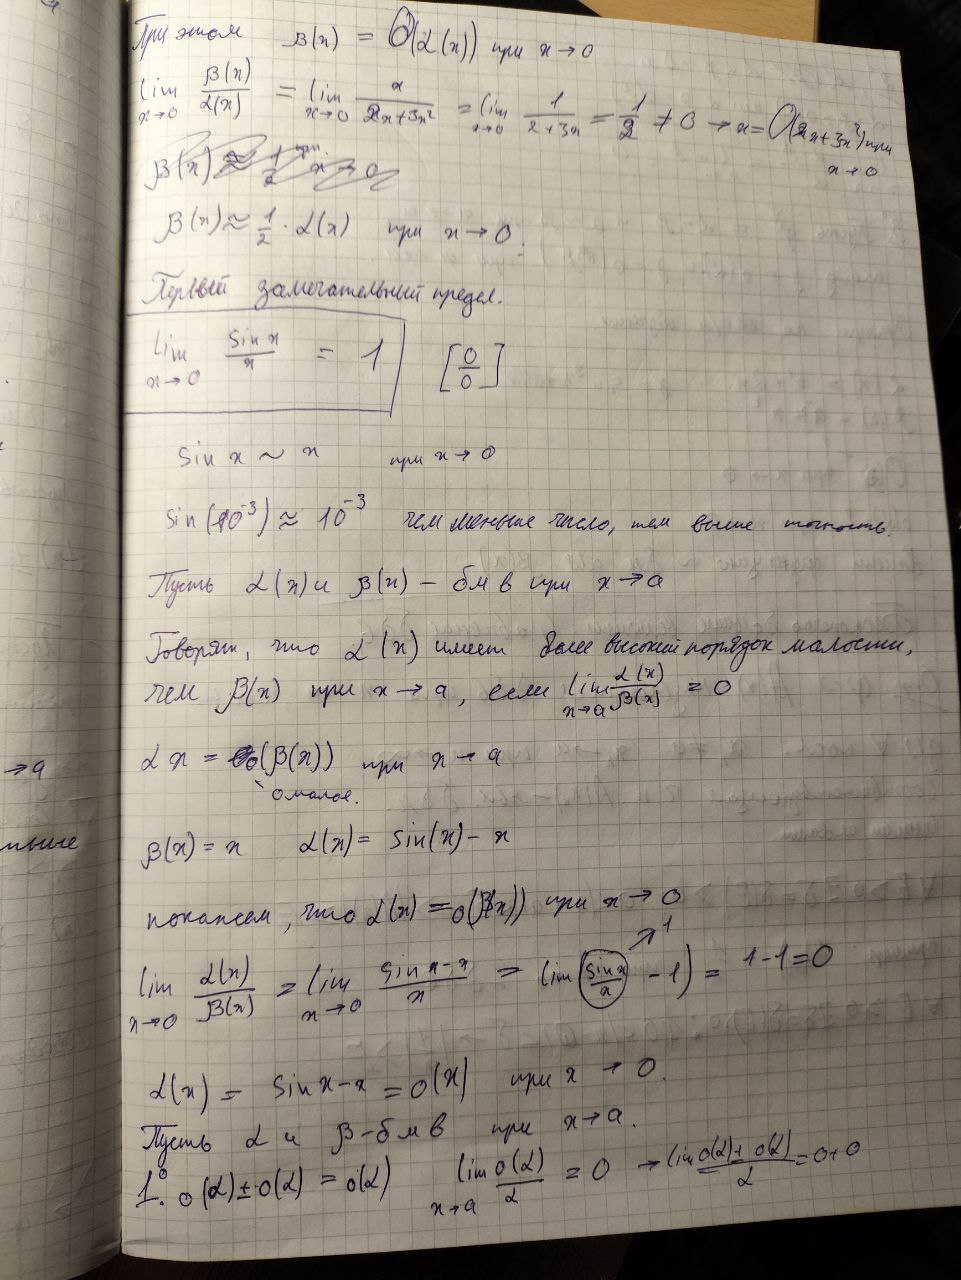 При этом β(x) = O(α(x)) при x→0
lim x→0 β(x)/α(x) = lim x→0 x/(2x+3x²) = lim x→0 1/(2+3x) = 1/2 ≠ 0 → x = O(2x+3x²) при x→0
β(x) ≈ 1/2 · α(x) при x→0.
Первый замечательный предел.
lim x→0 sin x/x = 1 [0/0]
sin x ~ x при x→0
sin(10⁻³) ≈ 10⁻³ чем меньше число, тем выше точность.
Пусть α(x) и β(x) – бм в при x→a
Говорят, что α(x) имеет более высокий порядок малости,
чем β(x) при x→a, если lim x→a α(x)/β(x) = 0
→a
α x = o(β(x)) при x→a
о малое.
β(x) = x α(x) = sin(x) – x
покажем, что α(x) = o(β(x)) при x→0
lim x→0 α(x)/β(x) = lim x→0 (sin x – x)/x = lim (sin x/x – 1) = 1–1=0
↗1
α(x) = sin x – x = o(x) при x→0.
Пусть α и β – бм в при x→a.
1.° o(α) ± o(α) = o(α) lim x→a o(α)/α = 0 → lim (o(α) + o(α))/α = 0+0